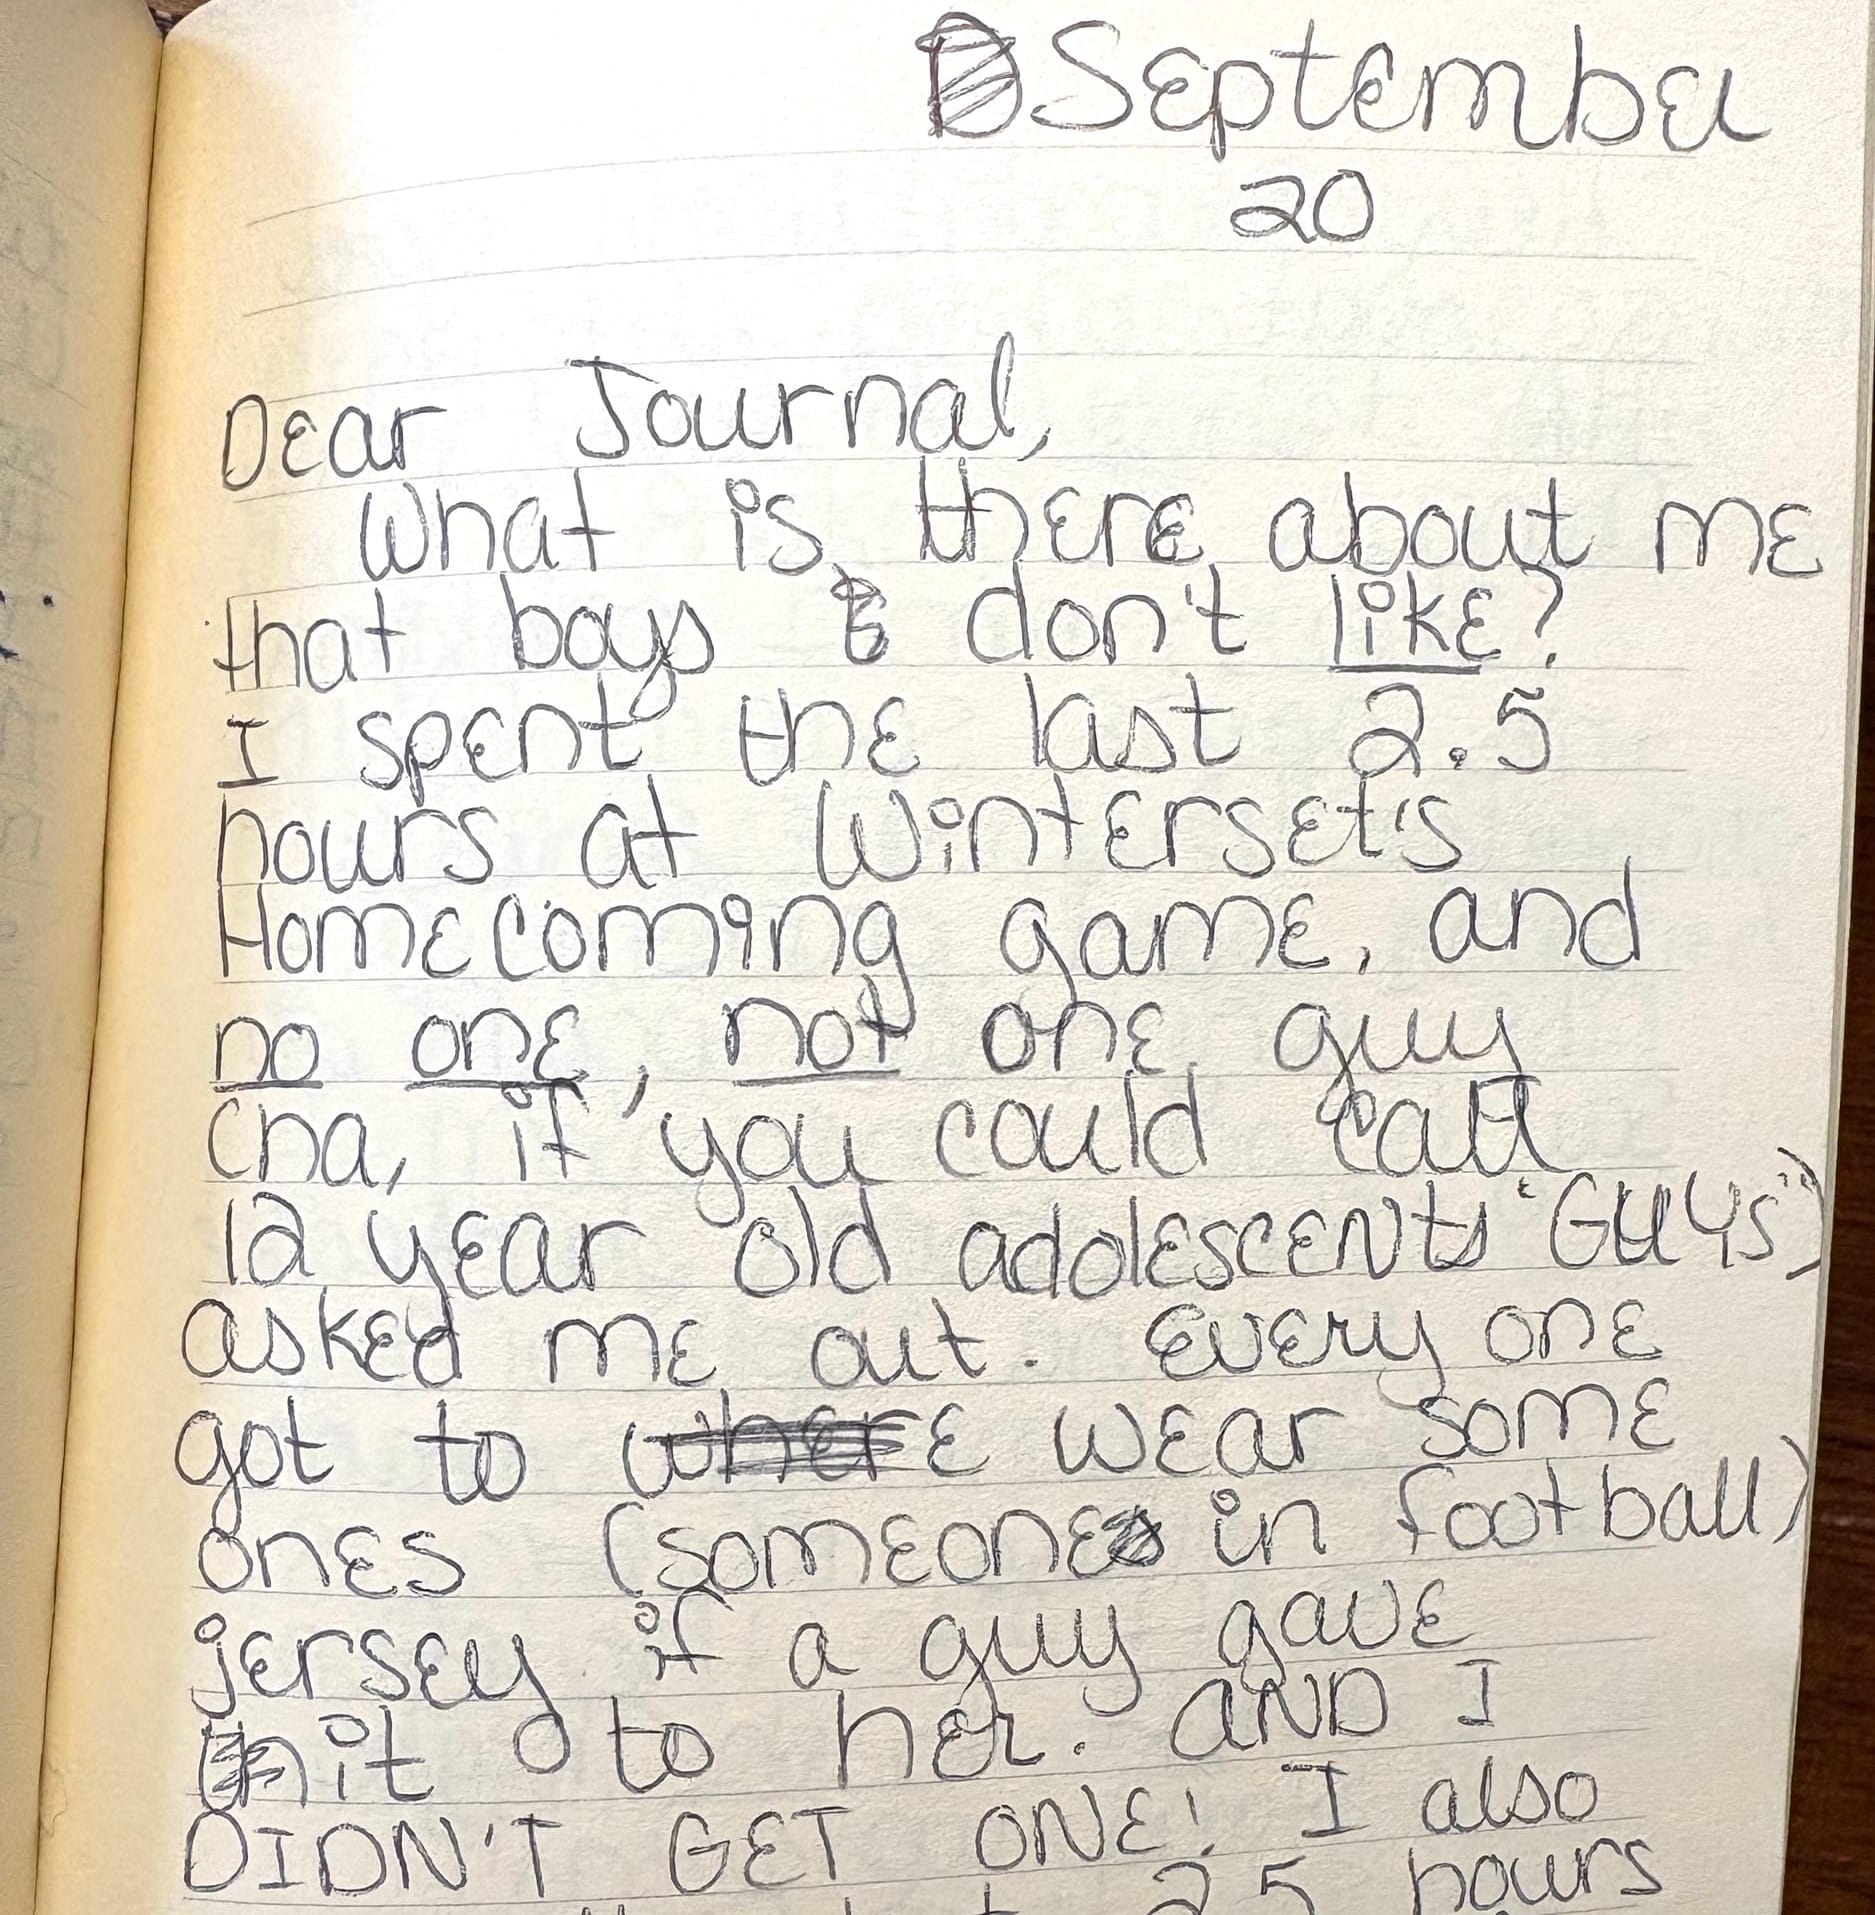 September
20
Dear Journal,
What is there about me
that boys don't like?
I spent the last 2.5
hours at Winterset's
Homecoming game, and
no one, not one guy
(ha, if you could call
12 year old adolescents "GUYS")
asked me out. Every one
got to where wear some
ones (someone in football)
jersey if a guy gave
it to her. AND I
DIDN'T GET ONE! I also
2.5 hours